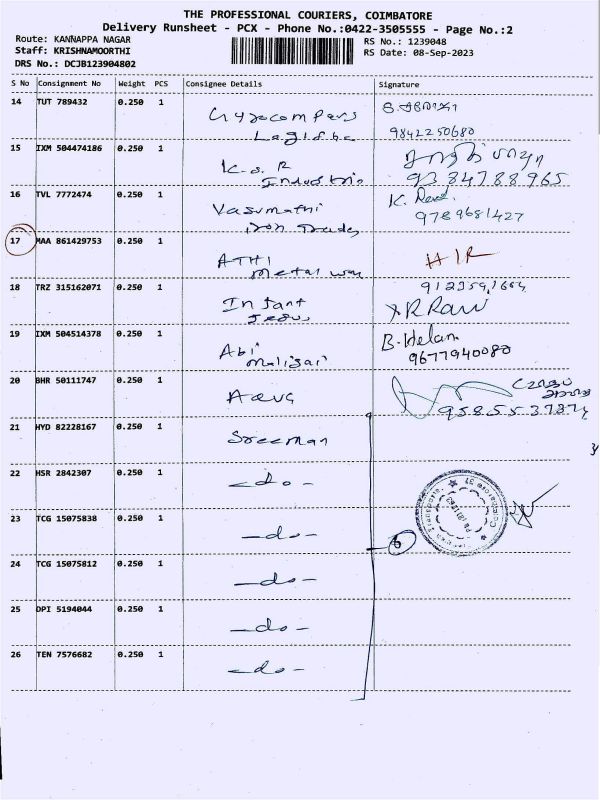 THE PROFESSIONAL COURIERS, COIMBATORE
Delivery Runsheet - PCX - Phone No.:0422-3505555 - Page No.:2
Route: KANNAPPA NAGAR
RS No.: 1239048
Staff: KRISHNAMOORTHI
RS Date: 08-Sep-2023
DRS No.: DCJB123904802
S No Consignment No Weight PCS Consignee Details Signature
14 TUT 789432 0.250 1
9842250680
15 IXM 504474186 0.250 1 K.S.R
Industrie
9384788965
16 TVL 7772474 0.250 1 Vasumathi K.
Iron Traders 9789681427
17 MAA 861429753 0.250 1 ATHI
Metal way
18 TRZ 315162071 0.250 1 Infant
Jesus
19 IXM 504514378 0.250 1 Abi B. Helan
Maligai 9677940080
20 BHR 50111747 0.250 1
21 HYD 82228167 0.250 1 Sreeman
22 HSR 2842307 0.250 1 -do-
23 TCG 15075838 0.250 1 -do-
6
24 TCG 15075812 0.250 1 -do-
25 DPI 5194044 0.250 1 -do-
26 TEN 7576682 0.250 1 -do-